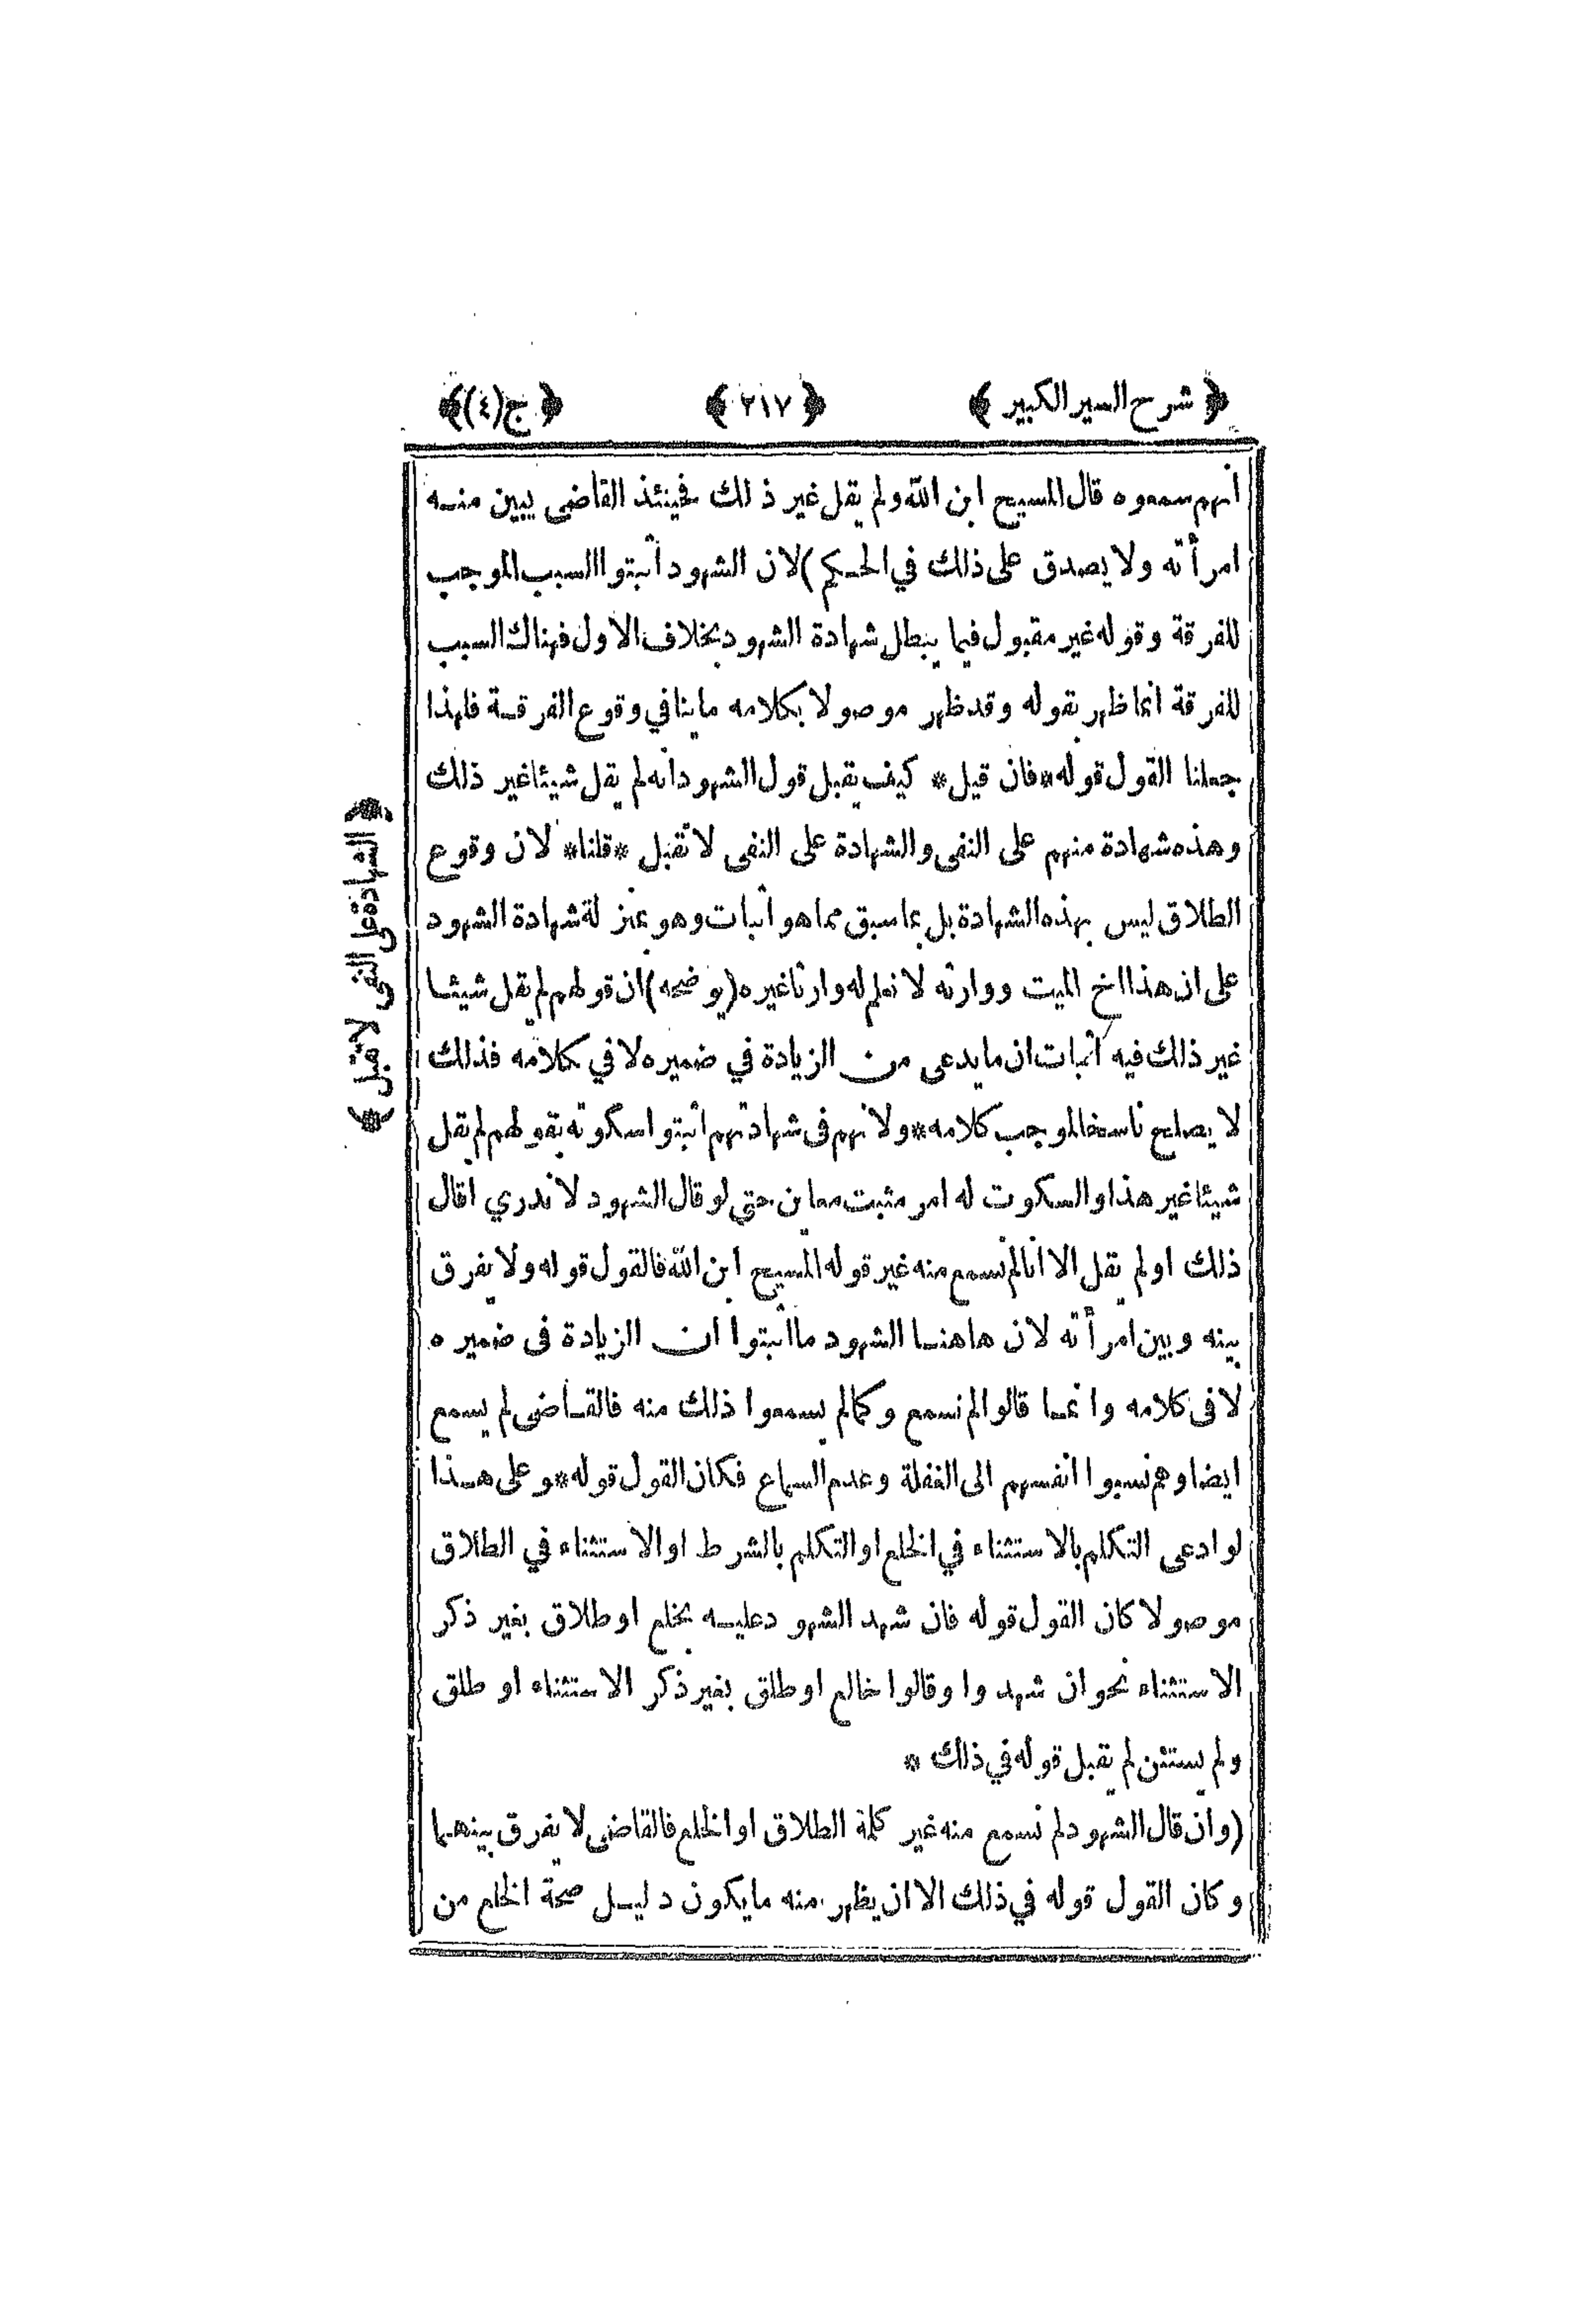 ﴿ شرح السير الكبير ﴾ ﴿ ٢١٧ ﴾ ﴿ ج (٤) ﴾
انهم سمعوه قال المسيح ابن الله ولم يقل غير ذلك فحينئذ القاضى يبين منه
امرأته ولا يصدق على ذلك في الحكم) لان الشهود أثبتوا السبب الموجب
للفرقة وقوله غير مقبول فيما يبطل شهادة الشهود بخلاف الاول فهناك السبب
للفرقة انما ظهر بقوله وقد ظهر موصولا بكلامه ما ينافي وقوع الفرقة فلهذا
جعلنا القول قوله * فان قيل * كيف يقبل قول الشهود انه لم يقل شيئا غير ذلك
وهذه شهادة منهم على النفى والشهادة على النفى لا تقبل * قلنا * لان وقوع
الطلاق ليس بهذه الشهادة بل بما سبق مما هو أثبات وهو بمنزلة شهادة الشهود
على ان هذا اخ الميت ووارثه لا نعلم له وارثا غيره (يوضحه) ان قولهم لم يقل شيئا
غير ذلك فيه أثبات ان ما يدعى من الزيادة في ضميره لا في كلامه فذلك
لا يصلح ناسخا لموجب كلامه * ولانهم فى شهادتهم اثبتوا سكوته بقولهم لم يقل
شيئا غير هذا والسكوت له امر مثبت معاين حتى لو قال الشهود لا ندري اقال
ذلك اولم يقل الا انا لم نسمع منه غير قوله المسيح ابن الله فالقول قوله ولا يفرق
بينه وبين امرأته لان هاهنا الشهود ما اثبتوا ان الزيادة فى ضميره
لا فى كلامه وانما قالوا لم نسمع وكما لم يسمعوا ذلك منه فالقاضى لم يسمع
ايضا وهم نسبوا انفسهم الى الغفلة وعدم السماع فكان القول قوله * وعلى هذا
لو ادعى التكلم بالاستثناء في الخلع او التكلم بالشرط او الاستثناء في الطلاق
موصولا كان القول قوله فان شهد الشهود عليه بخلع او طلاق بغير ذكر
الاستثناء نحو ان شهدوا وقالوا خالع او طلق بغير ذكر الاستثناء او طلق
ولم يستثن لم يقبل قوله في ذلك *
(وان قال الشهود لم نسمع منه غير كلمة الطلاق او الخلع فالقاضى لا يفرق بينهما
وكان القول قوله في ذلك الا ان يظهر منه ما يكون دليل صحة الخلع من
﴿ الشهادة على النفى لا تقبل ﴾